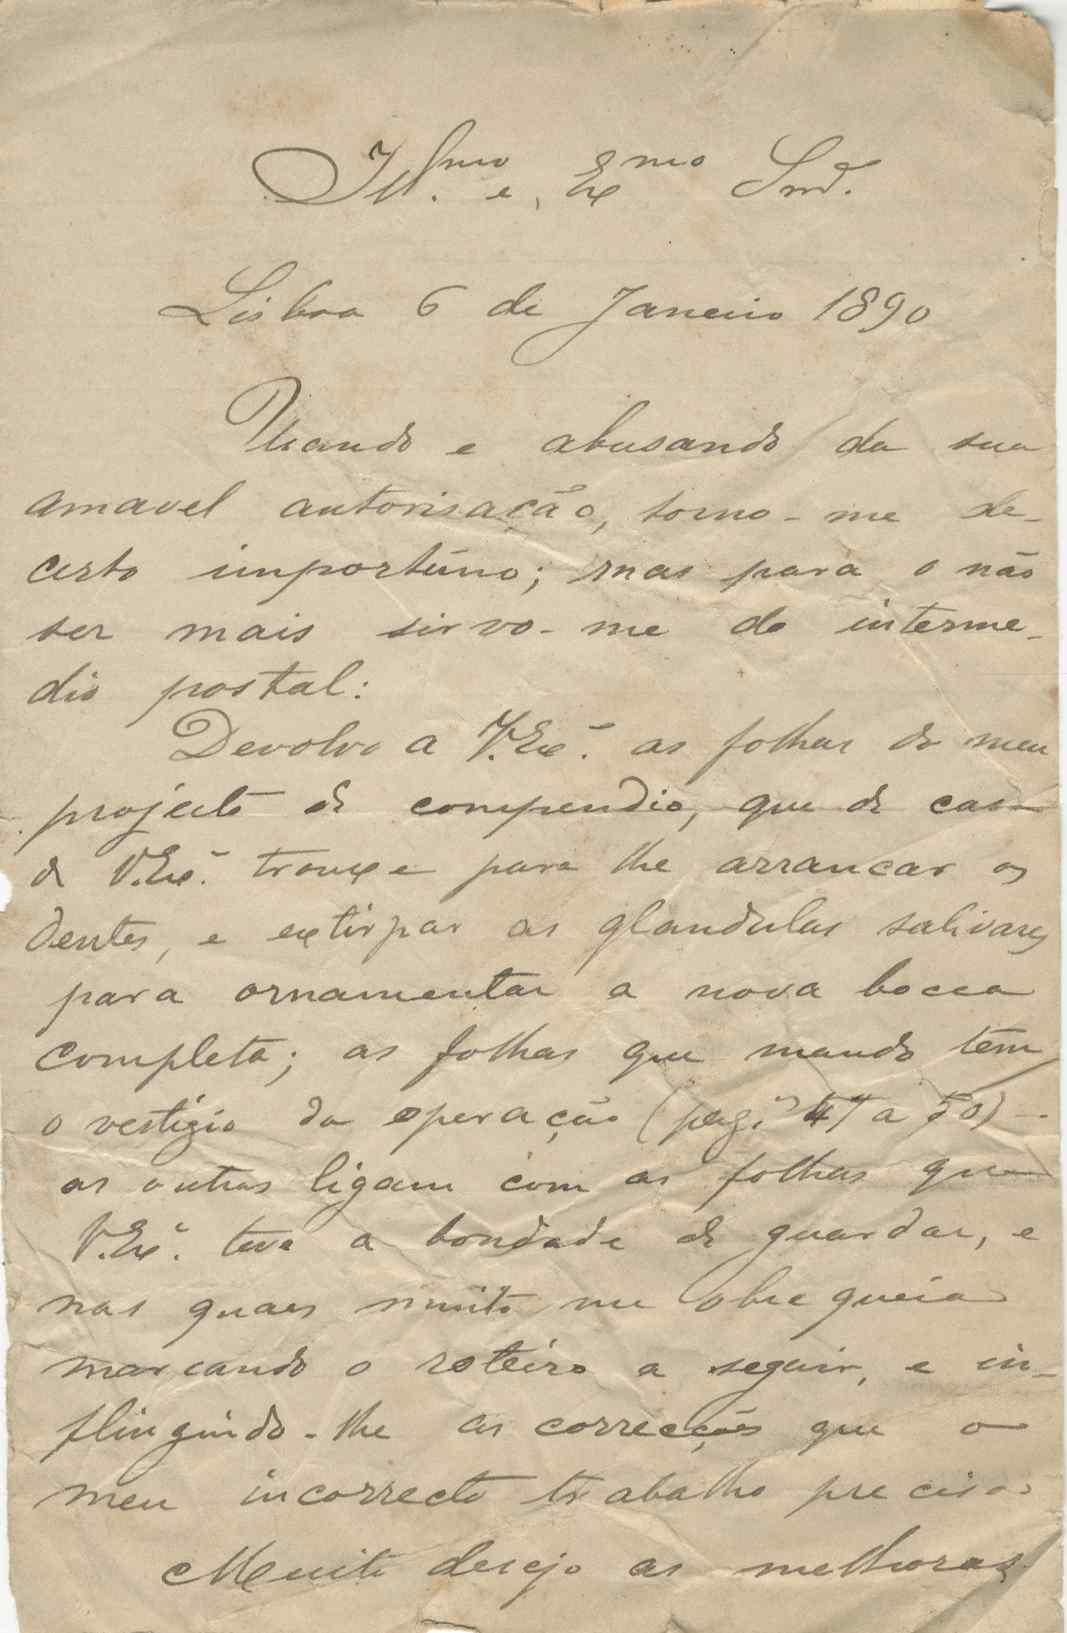 Ill.mo e Ex.mo Snr.
Lisboa 6 de Janeiro 1890
Usando e abusando da sua
amavel autorisação, torno-me de-
certo importúno; mas para o não
ser mais sirvo-me do interme-
dio postal:
Devolvo a V.Exª. as folhas do meu
projecto de compendio, que de casa
de V.Exª. trouxe para lhe arrancar os
dentes, e extirpar as glandulas salivares
para ornamentar a nova bocca
completa; as folhas que mando têm
o vestigio da operação (pag.s 47 a 50) -
as outras ligam com as folhas que
V.Exª. teve a bondade de guardar, e
nas quaes muito me obsequeia
marcando o roteiro a seguir, e in-
flingindo-lhe as correcções que o
meu incorrecto trabalho precisa.
Muito desejo as melhoras